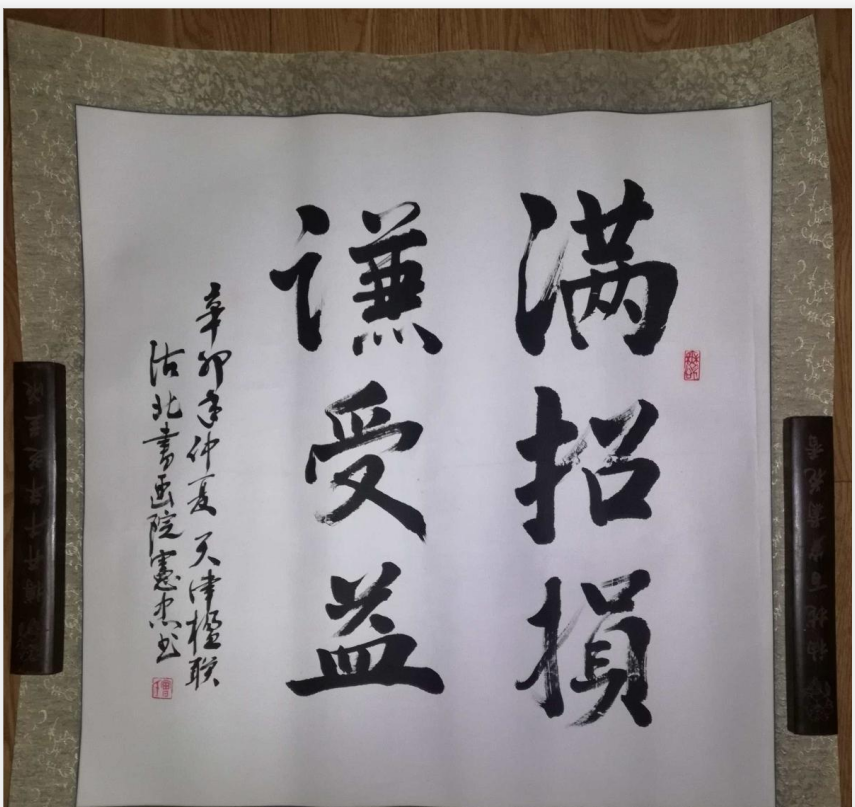 满招损
谦受益
辛卯年仲夏天津楹联
沽北书画院宪忠书